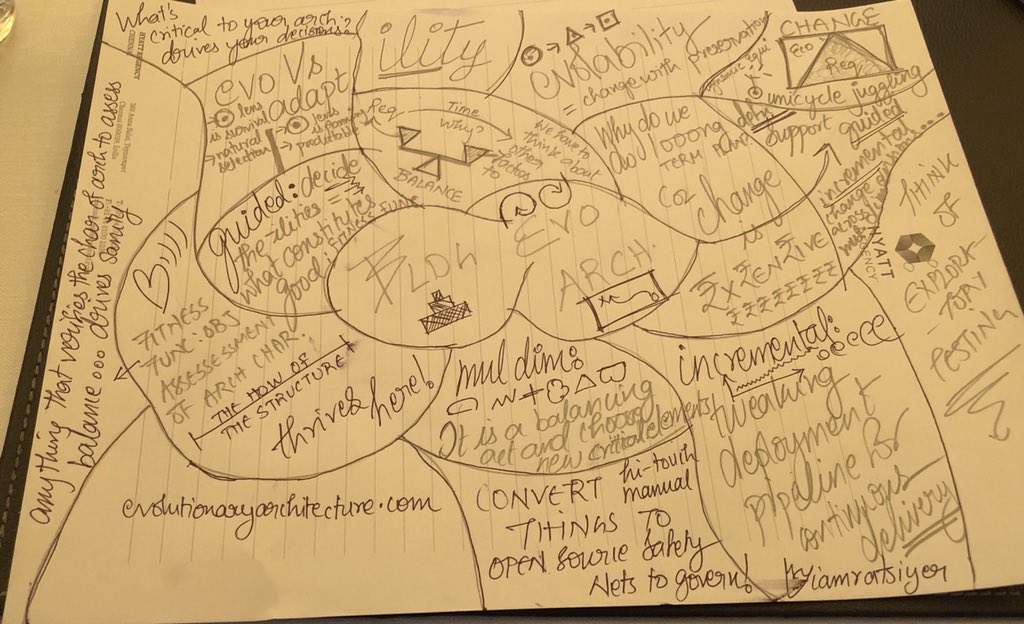 What's
critical to your arch.
drives your decisions?
HYATT REGENCY
CHENNAI
365 Anna Salai, Teynampet
Chennai 600018, India
ility
evolability
= change worth preservation
CHANGE
Eco
Req
dynamic equi
unicycle juggling
defn
support guided
incremental
change
across
mul-dim
EVO Vs
adapt
lens
is survival
→ natural
selection
lens
is
predictable
Req
Time
Why?
BALANCE
We have to
think about
other
factors
too
Why do we
do looong
TERM plan?
COZ
change
is
EXPENSIVE
guided: decide
the ilities =
what constitutes
good:
FITNESS FUNC
BLDG
EVO
ARCH.
B))))
FITNESS
FUNC: OBJ
ASSESSMENT
OF ARCH CHAR!
THE HOW OF
THE STRUCTURE
thrives here!
mul dim:
It is a balancing
act and choose
new critical elements
incremental:
tweaking
deployment
pipeline for
continuous
delivery
HYATT
REGENCY
THINK
OF
EXPLORA
-TORY
TESTING
anything that verifies the char of arch to assess
balance... drives sanity
evolutionaryarchitecture.com
CONVERT hi-touch
manual
THINGS TO
OPEN SOURCE safety
Nets to govern!
by iamraatsiyer